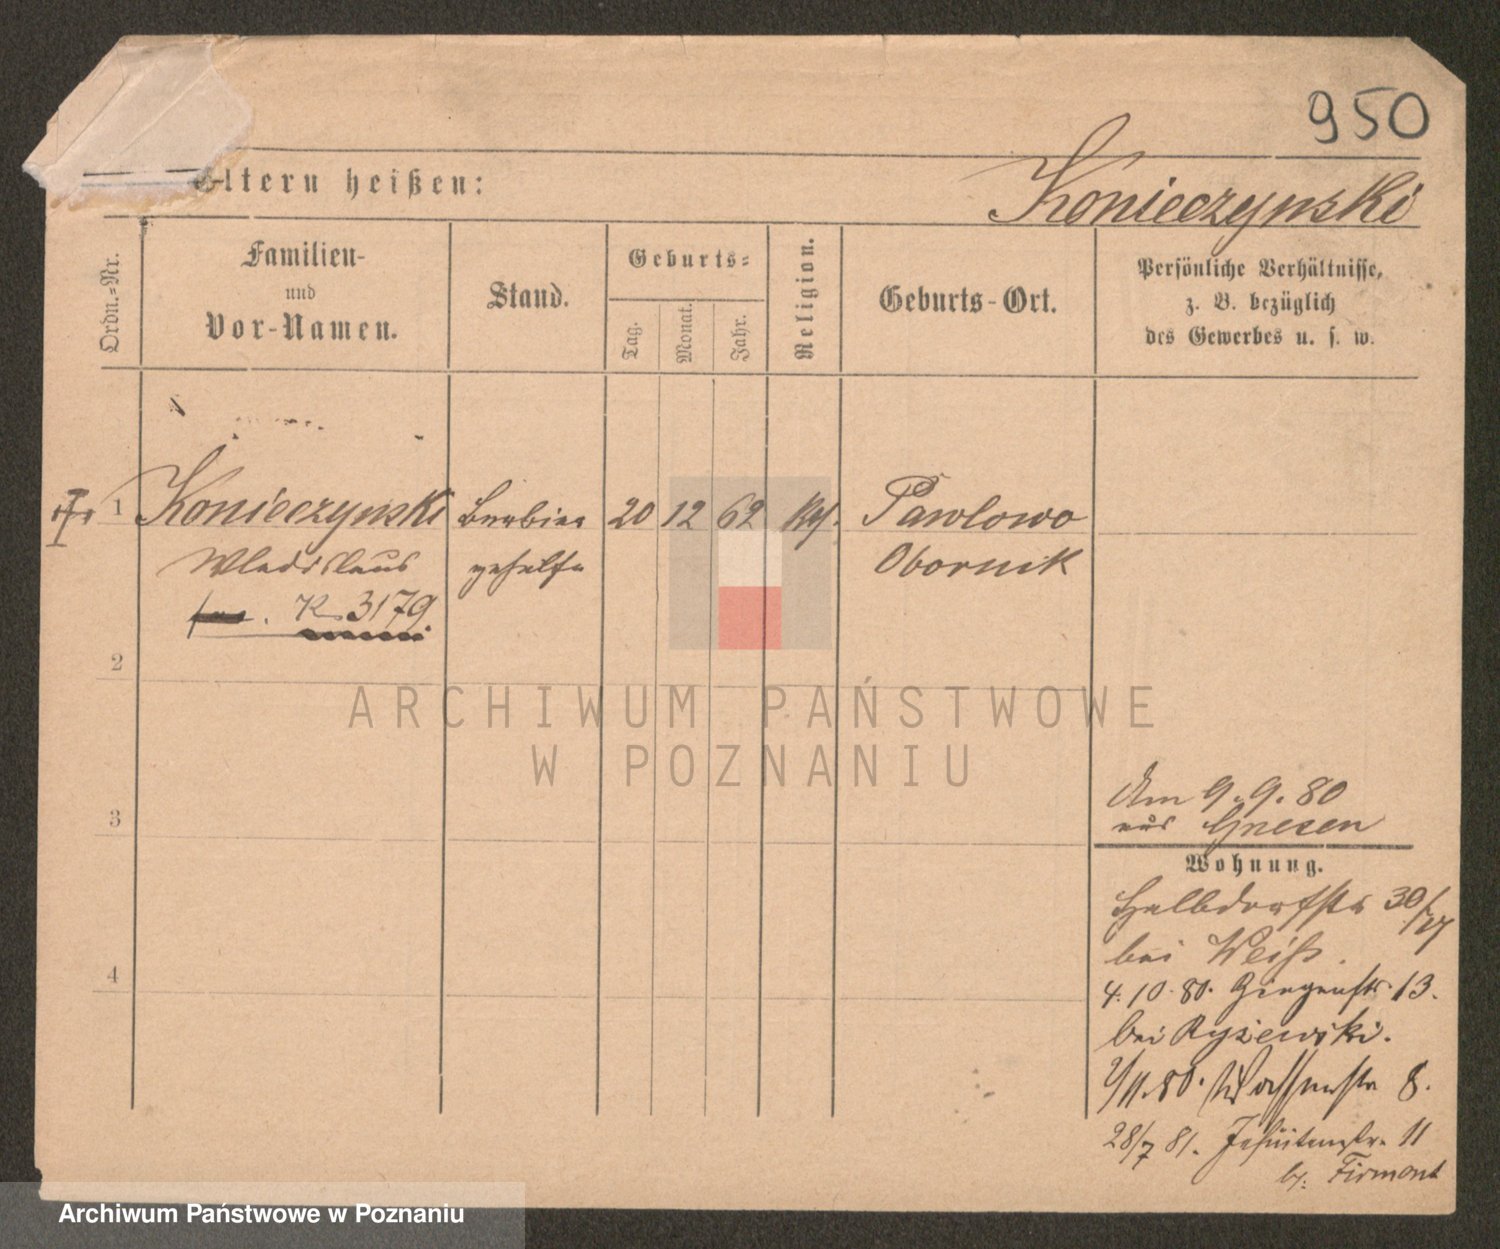 950
Eltern heißen:
Konieczynski
Ordn.-Nr.
Familien-
und
Vor-Namen.
Stand.
Geburts-
Tag.
Monat.
Jahr.
Religion.
Geburts-Ort.
Persönliche Verhältnisse,
z. B. bezüglich
des Gewerbes u. s. w.
1 Konieczynski Barbier 20 12 62 Pawlowo
Wladislaus gehilfe Obornik
K 3179
2
3
4
Am 9.9.80
aus Gnesen
Wohnung.
Halbdorfstr 30/
bei Weiß.
4.10.80. Ziegenstr. 13.
bei Ryżewski.
2/11.80. Wasserstr 8.
28/7 81. Jesuitenstr. 11
b. Firmont
ARCHIWUM PAŃSTWOWE
W POZNANIU
Archiwum Państwowe w Poznaniu